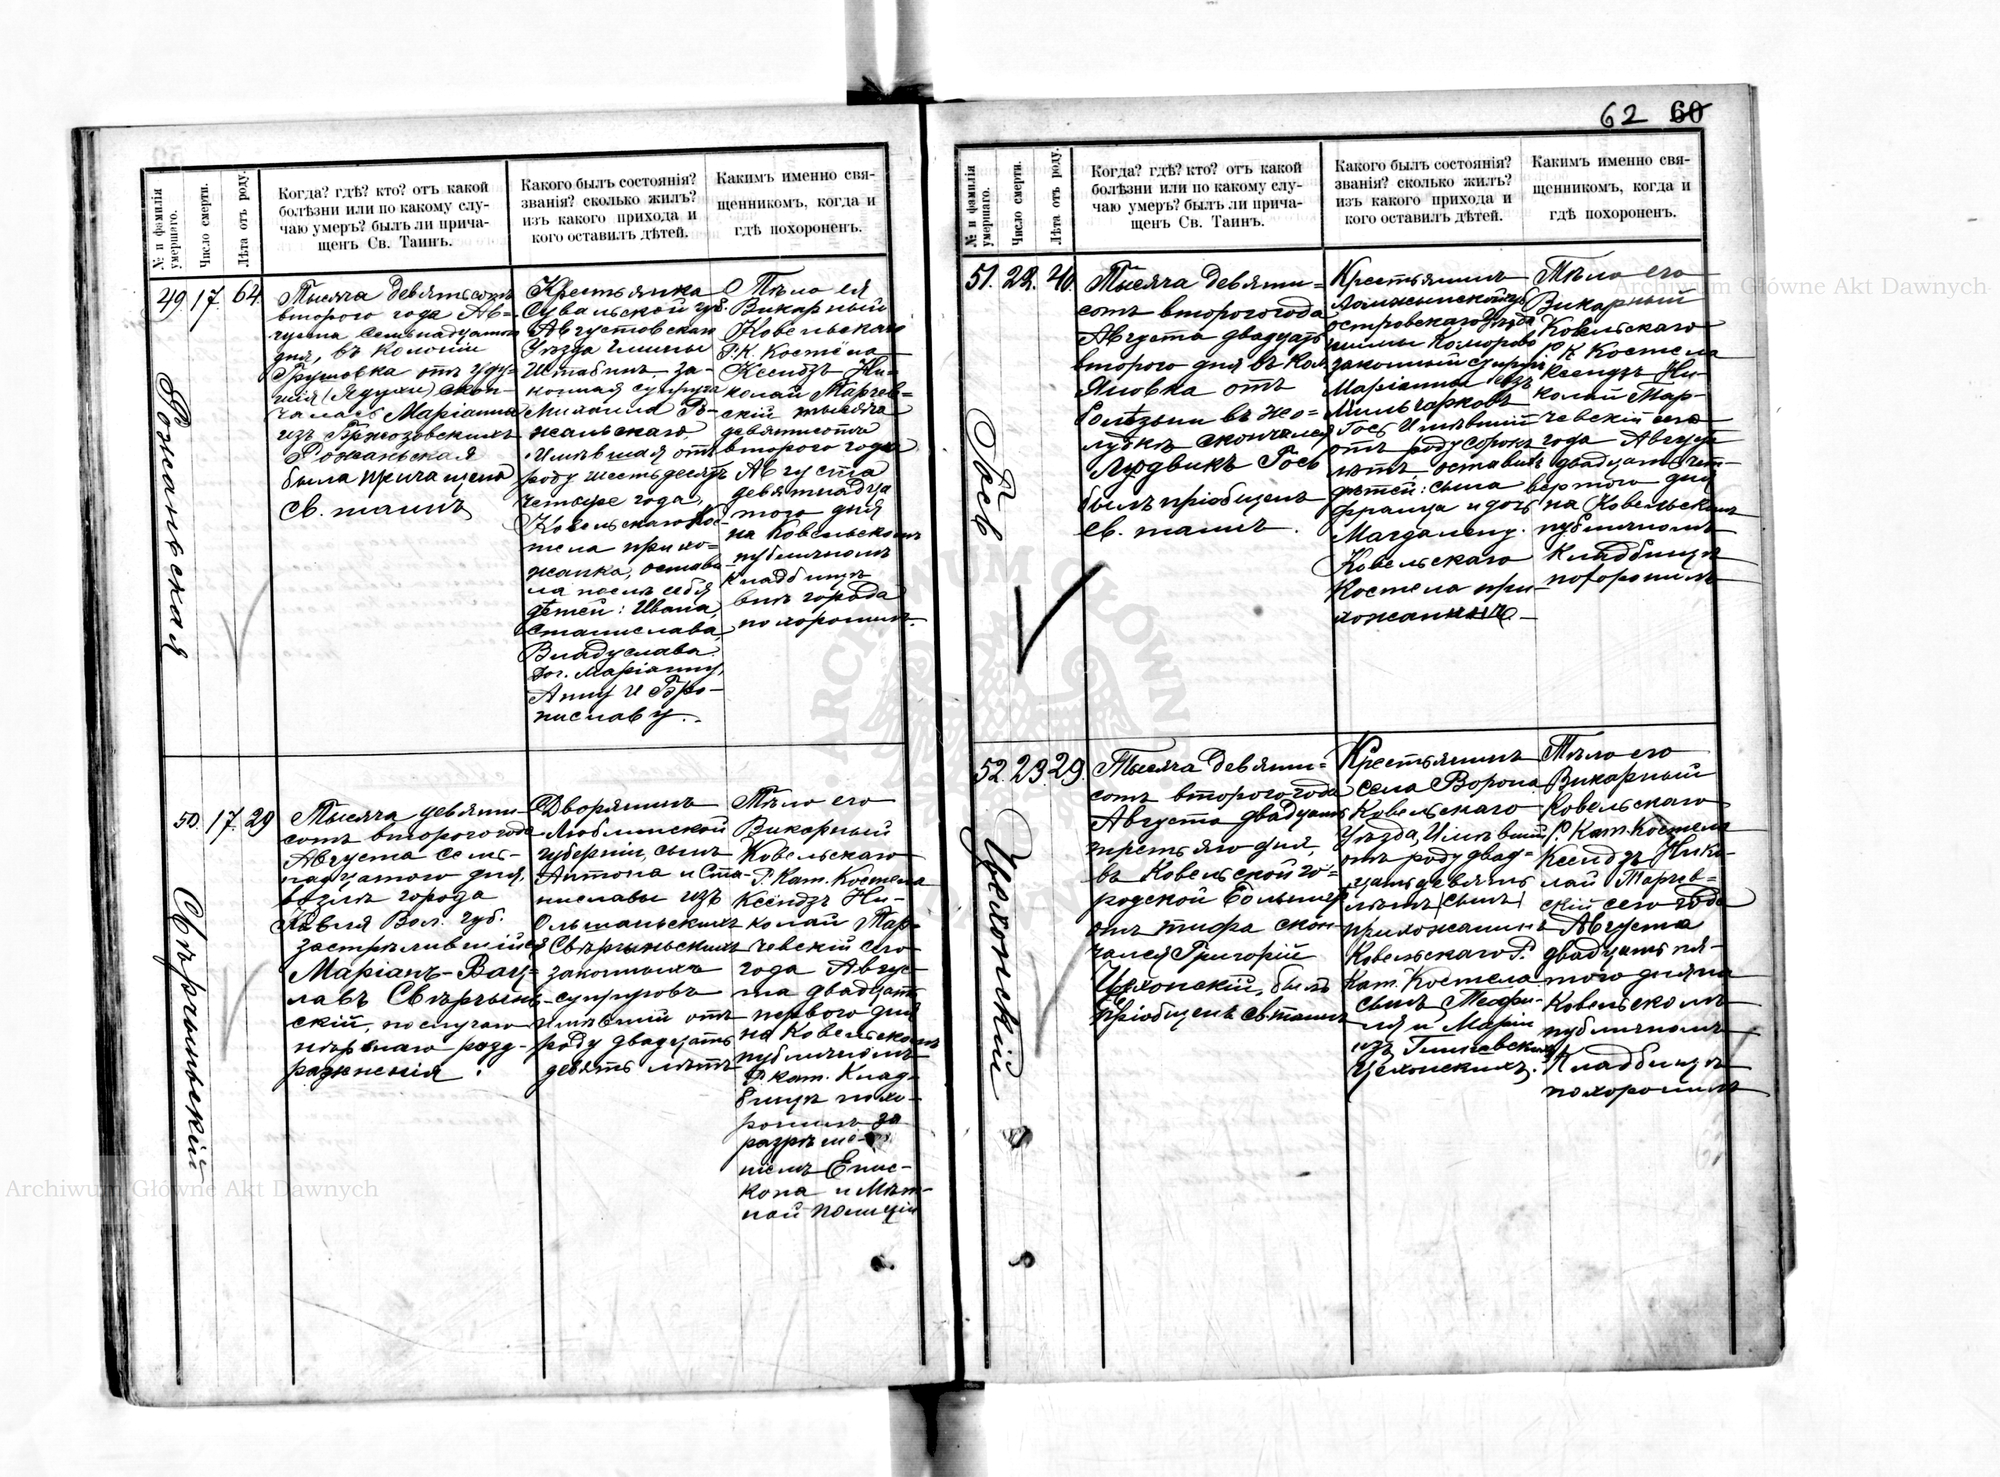 62 60
№ и фамилія умершаго.
Число смерти.
Лѣта отъ роду.
Когда? гдѣ? кто? отъ какой
болѣзни или по какому слу-
чаю умеръ? былъ ли прича-
щенъ Св. Таинъ.
Какого былъ состоянія?
званія? сколько жилъ?
изъ какого прихода и
кого оставилъ дѣтей.
Какимъ именно свя-
щенникомъ, когда и
гдѣ похороненъ.
49. 17. 64.
Рожаньская
Тысяча девятьсотъ
второго года Ав-
густа семьнадцатого
дня, въ колоніи
Грушовка отъ уду-
шія (Ядухи) скон-
чалась Маріанна
изъ Бржозовскихъ
Рожаньская
была причащена
Св. таинъ
Крестьянка
Сувальской губ.
Августовскаго
Уѣзда гмины
Штабинъ, за-
конная супруга
Михаила Ро-
жаньскаго
Имѣвшая отъ
роду шестьдесятъ
четыре года,
Ковельскаго Кос-
тела прихо-
жанка, остави-
ла послѣ себя
дѣтей: Ивана,
Станислава,
Владуслава
доч. Маріанну,
Анну и Бро-
ниславу.
Тѣло ея
Викарный
Ковельскаго
Р. К. Костёла
Ксендзъ Ни-
колай Тарчев-
скій тысяча
девятьсотъ
второго года
Августа
девятнадца
того дня
на Ковельскомъ
публичномъ
кладбищѣ
внѣ города
похоронилъ.
50. 17. 29
Свѣрчиньскій
Тысяча девяти-
сотъ второго года
Августа семь-
надцатого дня,
возлѣ города
Ковля Вол. губ.
застрѣлившійся
Маріанъ-Вац-
лавъ Свѣрчинь-
скій, по случаю
нервнаго розд-
раженія.
Дворянинъ
Люблинской
губерніи, сынъ
Антона и Ста-
ниславы изъ
Ольшаньскихъ
Свѣрчиньскихъ
законныхъ
супруговъ
имѣвшій отъ
роду двадцать
девять лѣтъ
Тѣло его
Викарный
Ковельскаго
Р. Кат. Костела
Ксендзъ Ни-
колай Тар-
чевскій сего
года Авгус-
та двадцать
перваго дня
на Ковельскомъ
публичномъ
Р. Кат. Клад-
бищѣ похо-
ронилъ за
разрѣше-
ніемъ Епис-
копа и Мѣст-
ной полиціи
№ и фамилія умершаго.
Число смерти.
Лѣта отъ роду.
Когда? гдѣ? кто? отъ какой
болѣзни или по какому слу-
чаю умеръ? былъ ли прича-
щенъ Св. Таинъ.
Какого былъ состоянія?
званія? сколько жилъ?
изъ какого прихода и
кого оставилъ дѣтей.
Какимъ именно свя-
щенникомъ, когда и
гдѣ похороненъ.
51. 22. 40.
Госъ
Тысяча девяти-
сотъ второго года
Августа двадцать
второго дня въ Кол.
Яновка отъ
болѣзни въ жо-
лудкѣ скончался
Людвикъ Госъ
былъ пріобщенъ
св. таинъ.
Крестьянинъ
Ломжинской губ
островскаго Уѣзда
гмины Коморово
законный супругъ
Маріанны изъ
Мильчарковъ
Госъ Имѣвшій
отъ роду сорокъ
лѣтъ, оставилъ
дѣтей: сына
франца и дочь
Магдалену.
Ковельскаго
Костела при-
хожанинъ
Тѣло его
Викарный
Ковельскаго
Р. К. Костела
Ксендзъ Ни-
колай Тар-
чевскій сего
года Августа
двадцать чет-
вертого дня
на Ковельскомъ
публичномъ
Кладбищѣ
похоронилъ
52. 23. 29.
Цѣхонскій
Тысяча девяти-
сотъ второго года
Августа двадцать
третьяго дня,
въ Ковельской го-
родской Больницѣ
отъ тифа скон-
чался Григорій
Цѣхонскій, былъ
Пріобщенъ св таинъ
Крестьянинъ
села Ворона
Ковельскаго
Уѣзда, Имѣвшій
отъ роду двад-
цать девять
лѣтъ, сынъ
прихожанинъ
Ковельскаго Р.
Кат. Костела
сынъ Теофи-
ля и Маріи
изъ
Цѣхонскихъ.
Тѣло его
Викарный
Ковельскаго
Р. Кат. Костела
Ксендзъ Нико-
лай Тарчев-
скій сего года
Августа
двадцать пя-
того дня на
Ковельскомъ
публичномъ
Кладбищѣ
похоронилъ
Archiwum Główne Akt Dawnych
Archiwum Główne Akt Dawnych